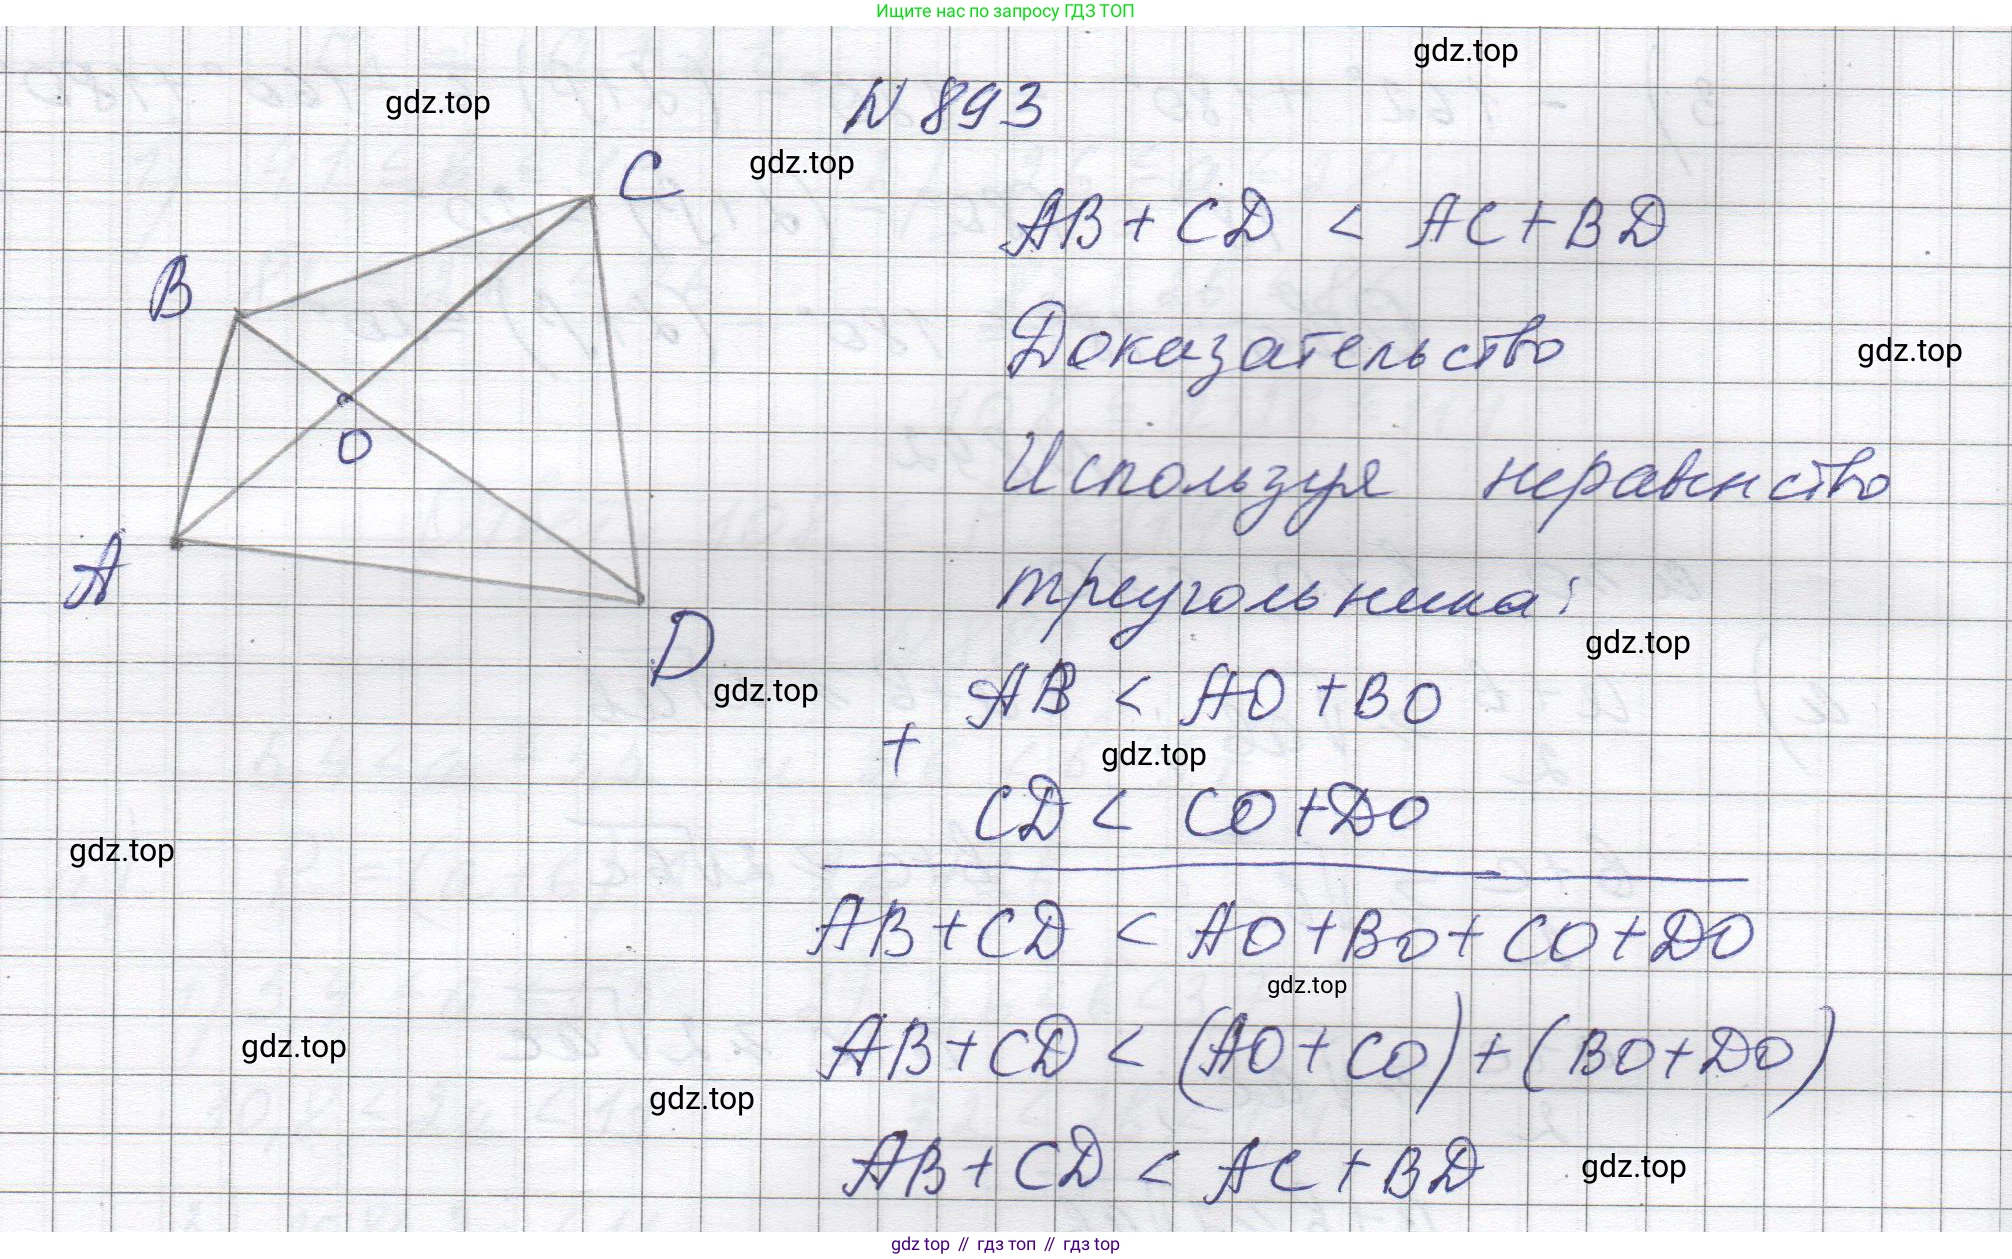 Ищите нас по запросу ГДЗ ТОП
gdz.top
gdz.top
N 893
gdz.top
C
AB + CD < AC + BD
B
Доказательство
gdz.top
O
Используя неравенство
A
треугольника:
gdz.top
D
gdz.top
AB < AO + BO
+
gdz.top
CD < CO + DO
gdz.top
AB + CD < AO + BO + CO + DO
gdz.top
AB + CD < (AO + CO) + (BO + DO)
gdz.top
gdz.top
AB + CD < AC + BD
gdz.top
gdz top // гдз топ // гдз top